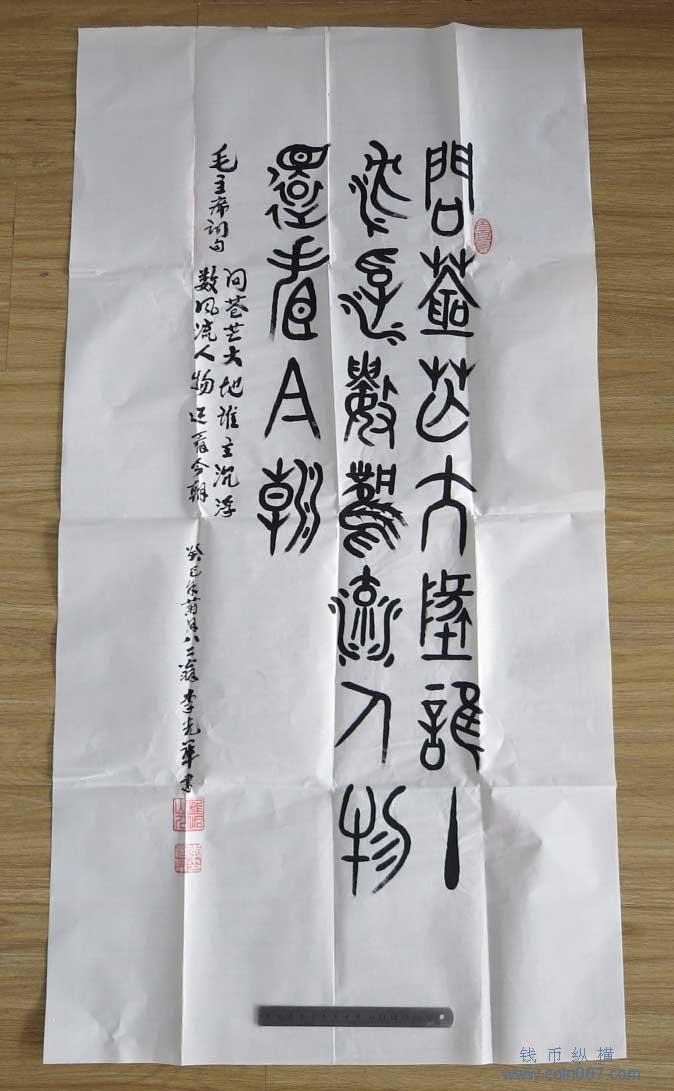 問蒼茫大地誰主
沉浮數風流人物
還看今朝
毛主席词句
问苍茫大地谁主沉浮
数风流人物还看今朝
癸巳年菊月八二翁李光华书
钱币纵横
www.coin007.com